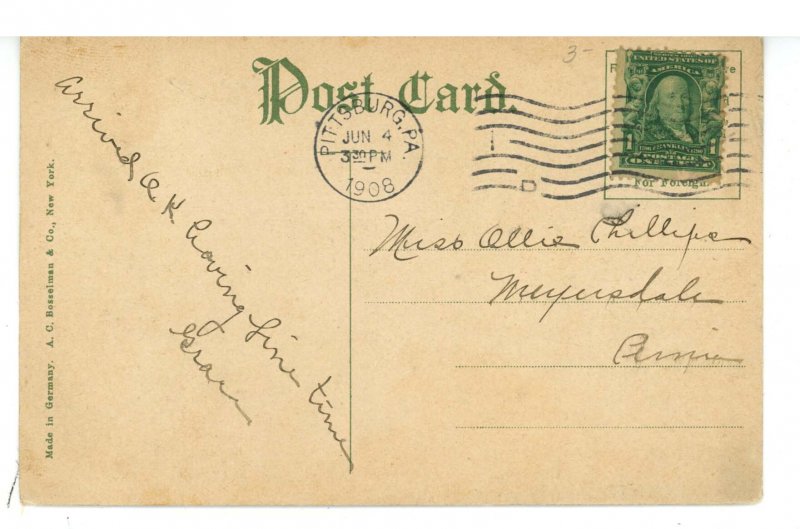 3-
Post Card.
PITTSBURG, PA.
JUN 4
3 30 PM
1908
UNITED STATES OF
AMERICA
FRANKLIN
1 POSTAGE 1
ONE CENT
For Foreign
D
arrived O.K. having
fine time
Grace
Miss Ollie Phillips
Meyersdale
Penna
Made in Germany. A. C. Bosselman & Co., New York.